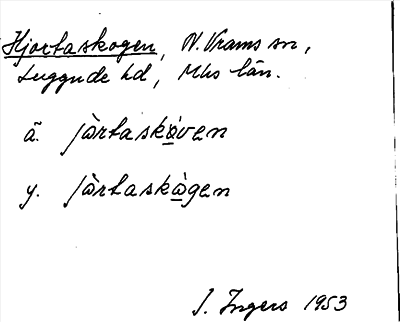 Hjortaskogen, N. Vrams sn,
Luggude hd, Mhs län.
ä. jàrtaskǫ́ven
y. jàrtaskǫ̀gen
I. Ingers 1953